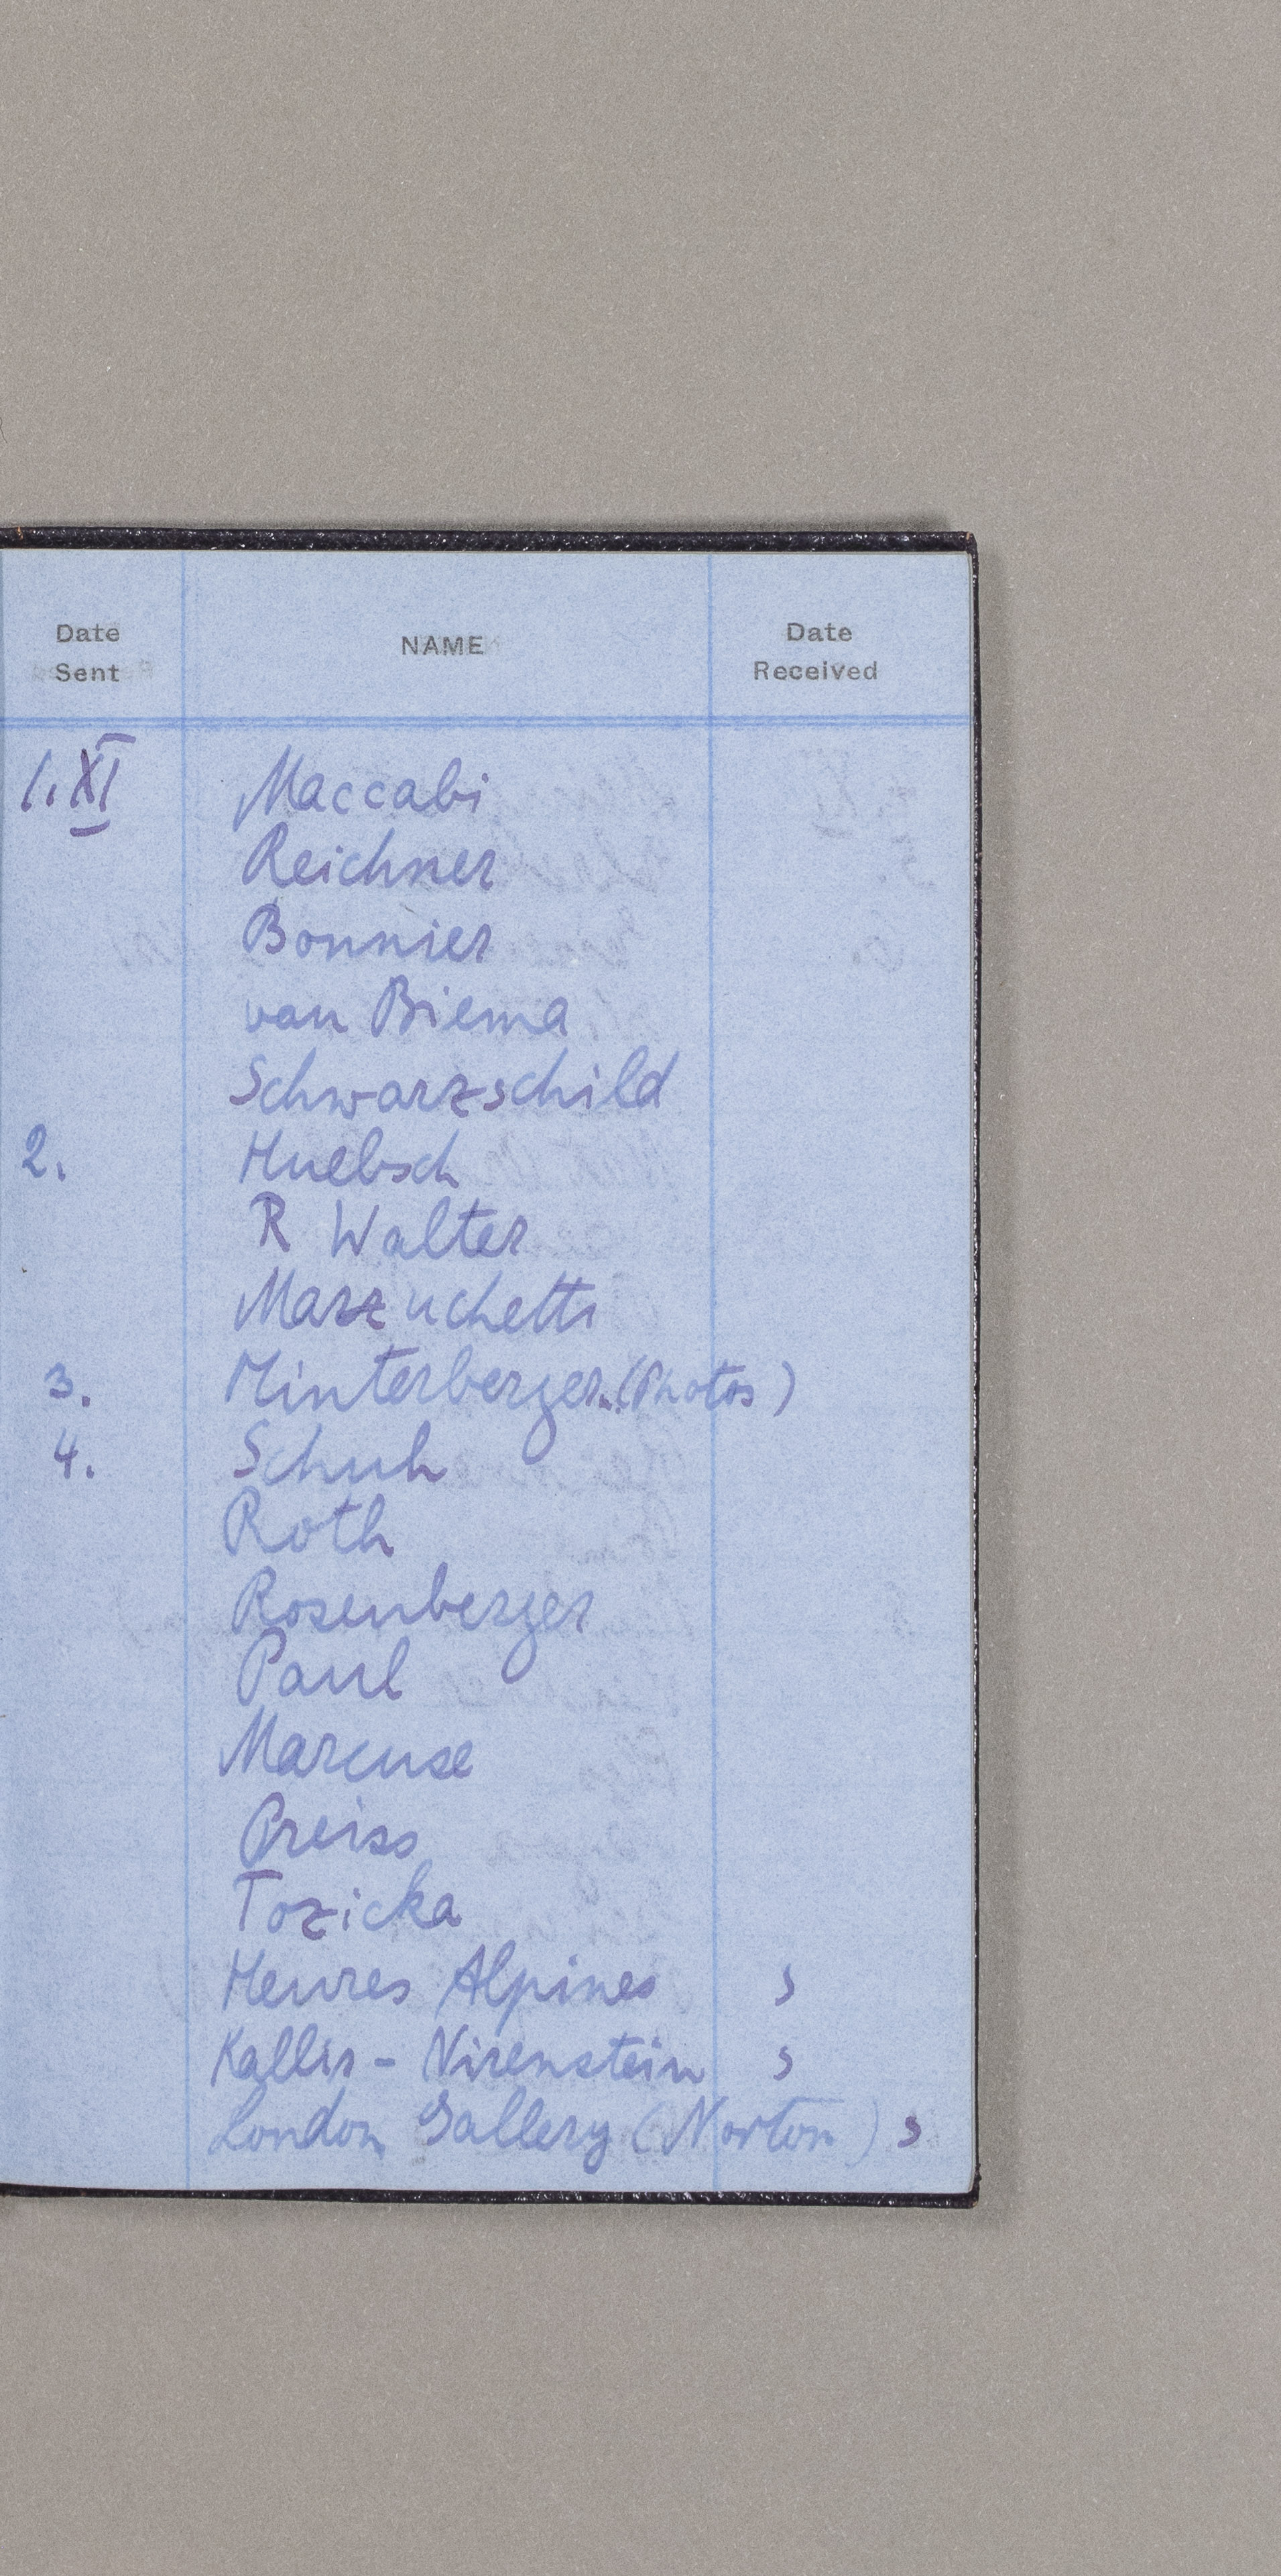 Date Sent NAME Date Received
1. XI Maccabi
Reichner
Bonnier
van Biema
Schwarzschild
2. Huebsch
R Walter
Marzuchetti
3. Hinterberger. (Photos)
4. Schuh
Roth
Rosenberger
Paul
Marcuse
Preiss
Tozicka
Heures Alpines s
Kallir - Nirenstein s
London Gallery (Norton) s